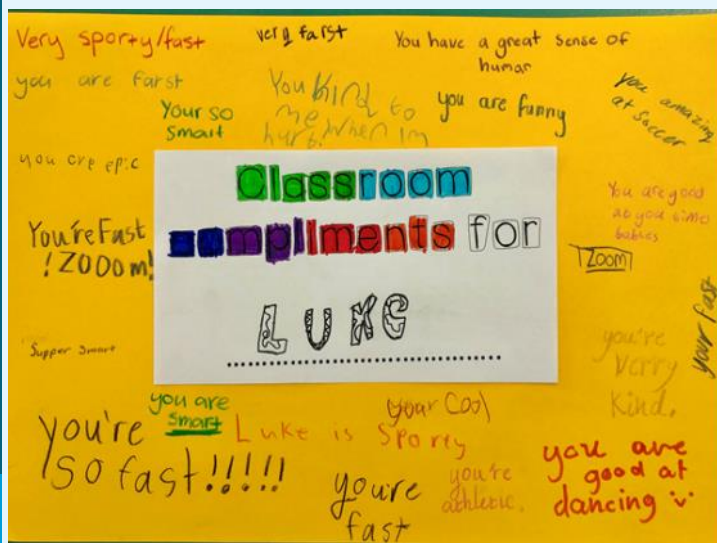 Very sporty/fast
very farst
You have a great sense of
humar
you are farst
Your so
smart
You kind to
me when im
hurt.
you are funny
you amazing
at soccer
you are epic
Classroom
compliments for
LUKE
You are good
at you
You're Fast
!ZOOOm!
Zoom
your fast
Supper smart
you're
Verry
Kind.
you are
smart
your Cool
Luke is Sporty
you're
so fast!!!!!
you're
fast
you're
athletic.
you are
good at
dancing